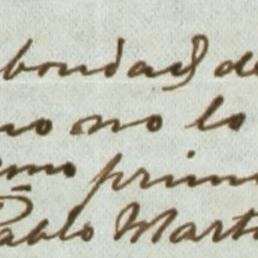 bondad de
no no lo
mo prim
Pablo Mart